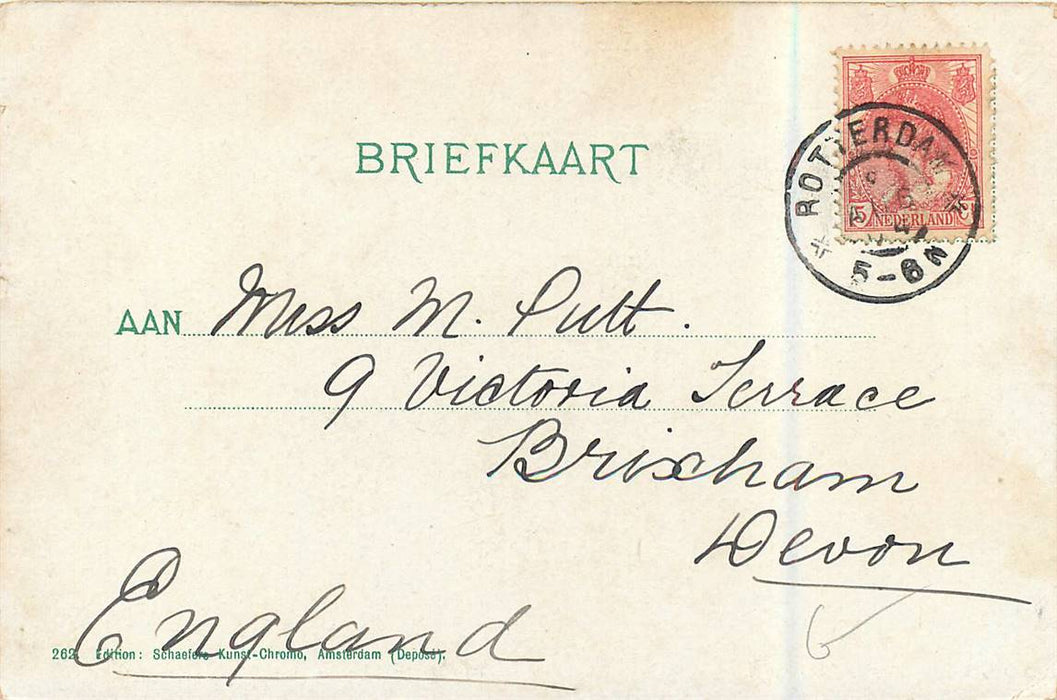 BRIEFKAART
ROTTERDAM
5-6N
5 NEDERLAND C
AAN Miss M. Putt.
9 Victoria Terrace
Brixham
Devon
England
262. Edition: Schaefers Kunst-Chromo, Amsterdam (Deposé).